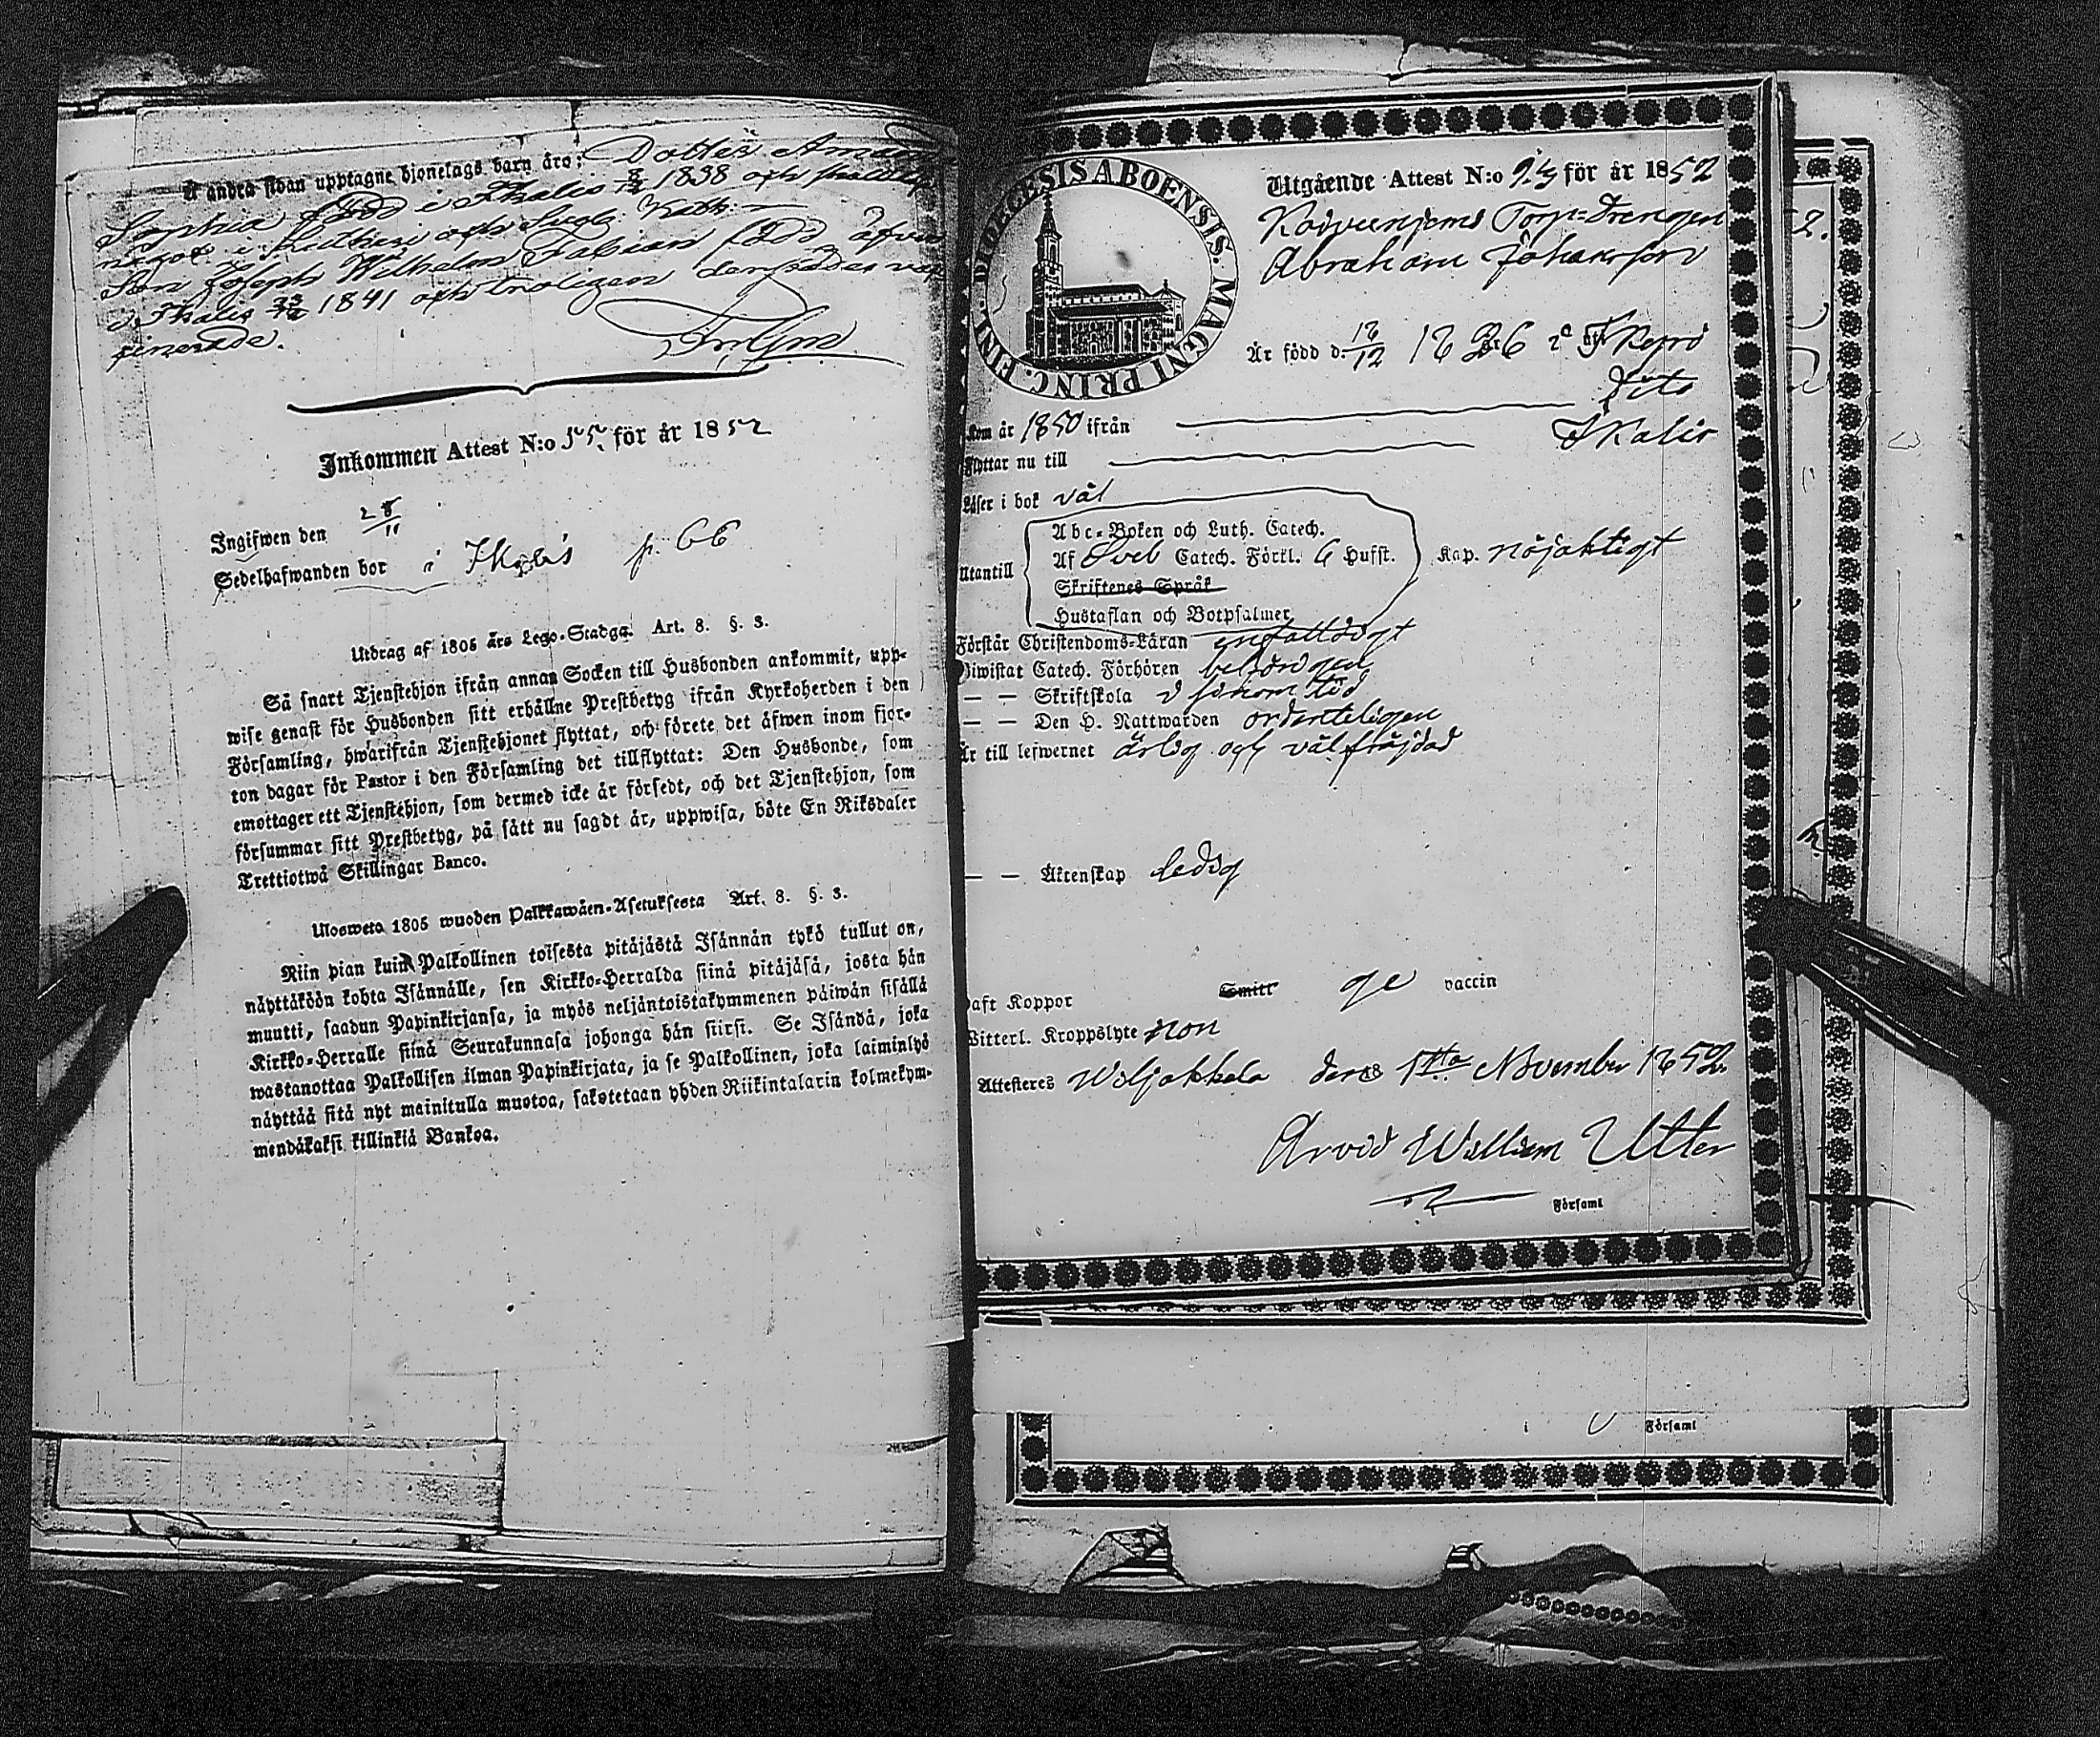 å andra sidan upptagne hjonelags barn äro: Dotter
Sophia född i Ikalis 1838 och
Lutheri och Sveb: Kath:
Son Joseph Wilhelm Fabian född äfven
i Ikalis 1841 och troligen
Inkommen Attest N:o 55 för år 1852
Ingifwen den 28/11
Sedelhafwanden bor i Ikalis p. 66
Utdrag af 1805 års Lego-Stadga. Art. 8. §. 3.
Så snart Tjenstehjon ifrån annan Socken till Husbonden ankommit, upp-
wise genast för Husbonden sitt erhållne Prestbetyg ifrån Kyrkoherden i den
Församling, hwarifrån Tjenstehjonet flyttat, och förete det äfwen inom fjor-
ton dagar för Pastor i den Församling det tillflyttat: Den Husbonde, som
emottager ett Tjenstehjon, som dermed icke är försedt, och det Tjenstehjon, som
försummar sitt Prestbetyg, på sätt nu sagdt är, uppwisa, böte En Riksdaler
Trettiotwå Skillingar Banco.
Ulosweto 1805 wuoden Palkkawäen-Asetuksesta Art. 8. §. 3.
Niin pian kuin Palkollinen toisesta pitäjästä Isännän tykö tullut on,
näyttäköön kohta Isännälle, sen Kirkko-Herralda siinä pitäjäsä, josta hän
muutti, saadun Papinkirjansa, ja myös neljäntoistakymmenen päiwän sisällä
Kirkko-Herralle siinä Seurakunnasa johonga hän siirsi. Se Isändä, joka
wastanottaa Palkollisen ilman Papinkirjata, ja se Palkollinen, joka laiminlyö
näyttää sitä nyt mainitulla muotoa, sakotetaan yhden Riikintalarin kolmekym-
mendäkaksi killinkiä Bankoa.
DIOECESIS ABOENSIS. MAGNI PRINC. FINL.
Utgående Attest N:o 93 för år 1852
Torp-Drengen
Abraham Johansson
Är född d. 16/12 1826 i
Dito
Kom år 1850 ifrån
Ikalis
Flyttar nu till
Läser i bok väl
Abc-Boken och Luth. Catech.
Utantill Af Sveb Catech. Förkl. 6 Hufst. Kap. nöjaktigt
Skriftenes Språk
Hustaflan och Botpsalmer
Förstår Christendoms-Läran enfaldigt
Biwistat Catech. Förhören behörigen
— — Skriftskola i sinom tid
— — Den H. Nattwarden ordenteligen
Är till lefwernet ärlig och välfräjdad
— — Äktenskap ledig
Haft Koppor Smitt ge vaccin
Witterl. Kroppslyte non
Attesteres Wiljakkala den 1sta November 1852.
Arvid William Utter
Församl
i Församl